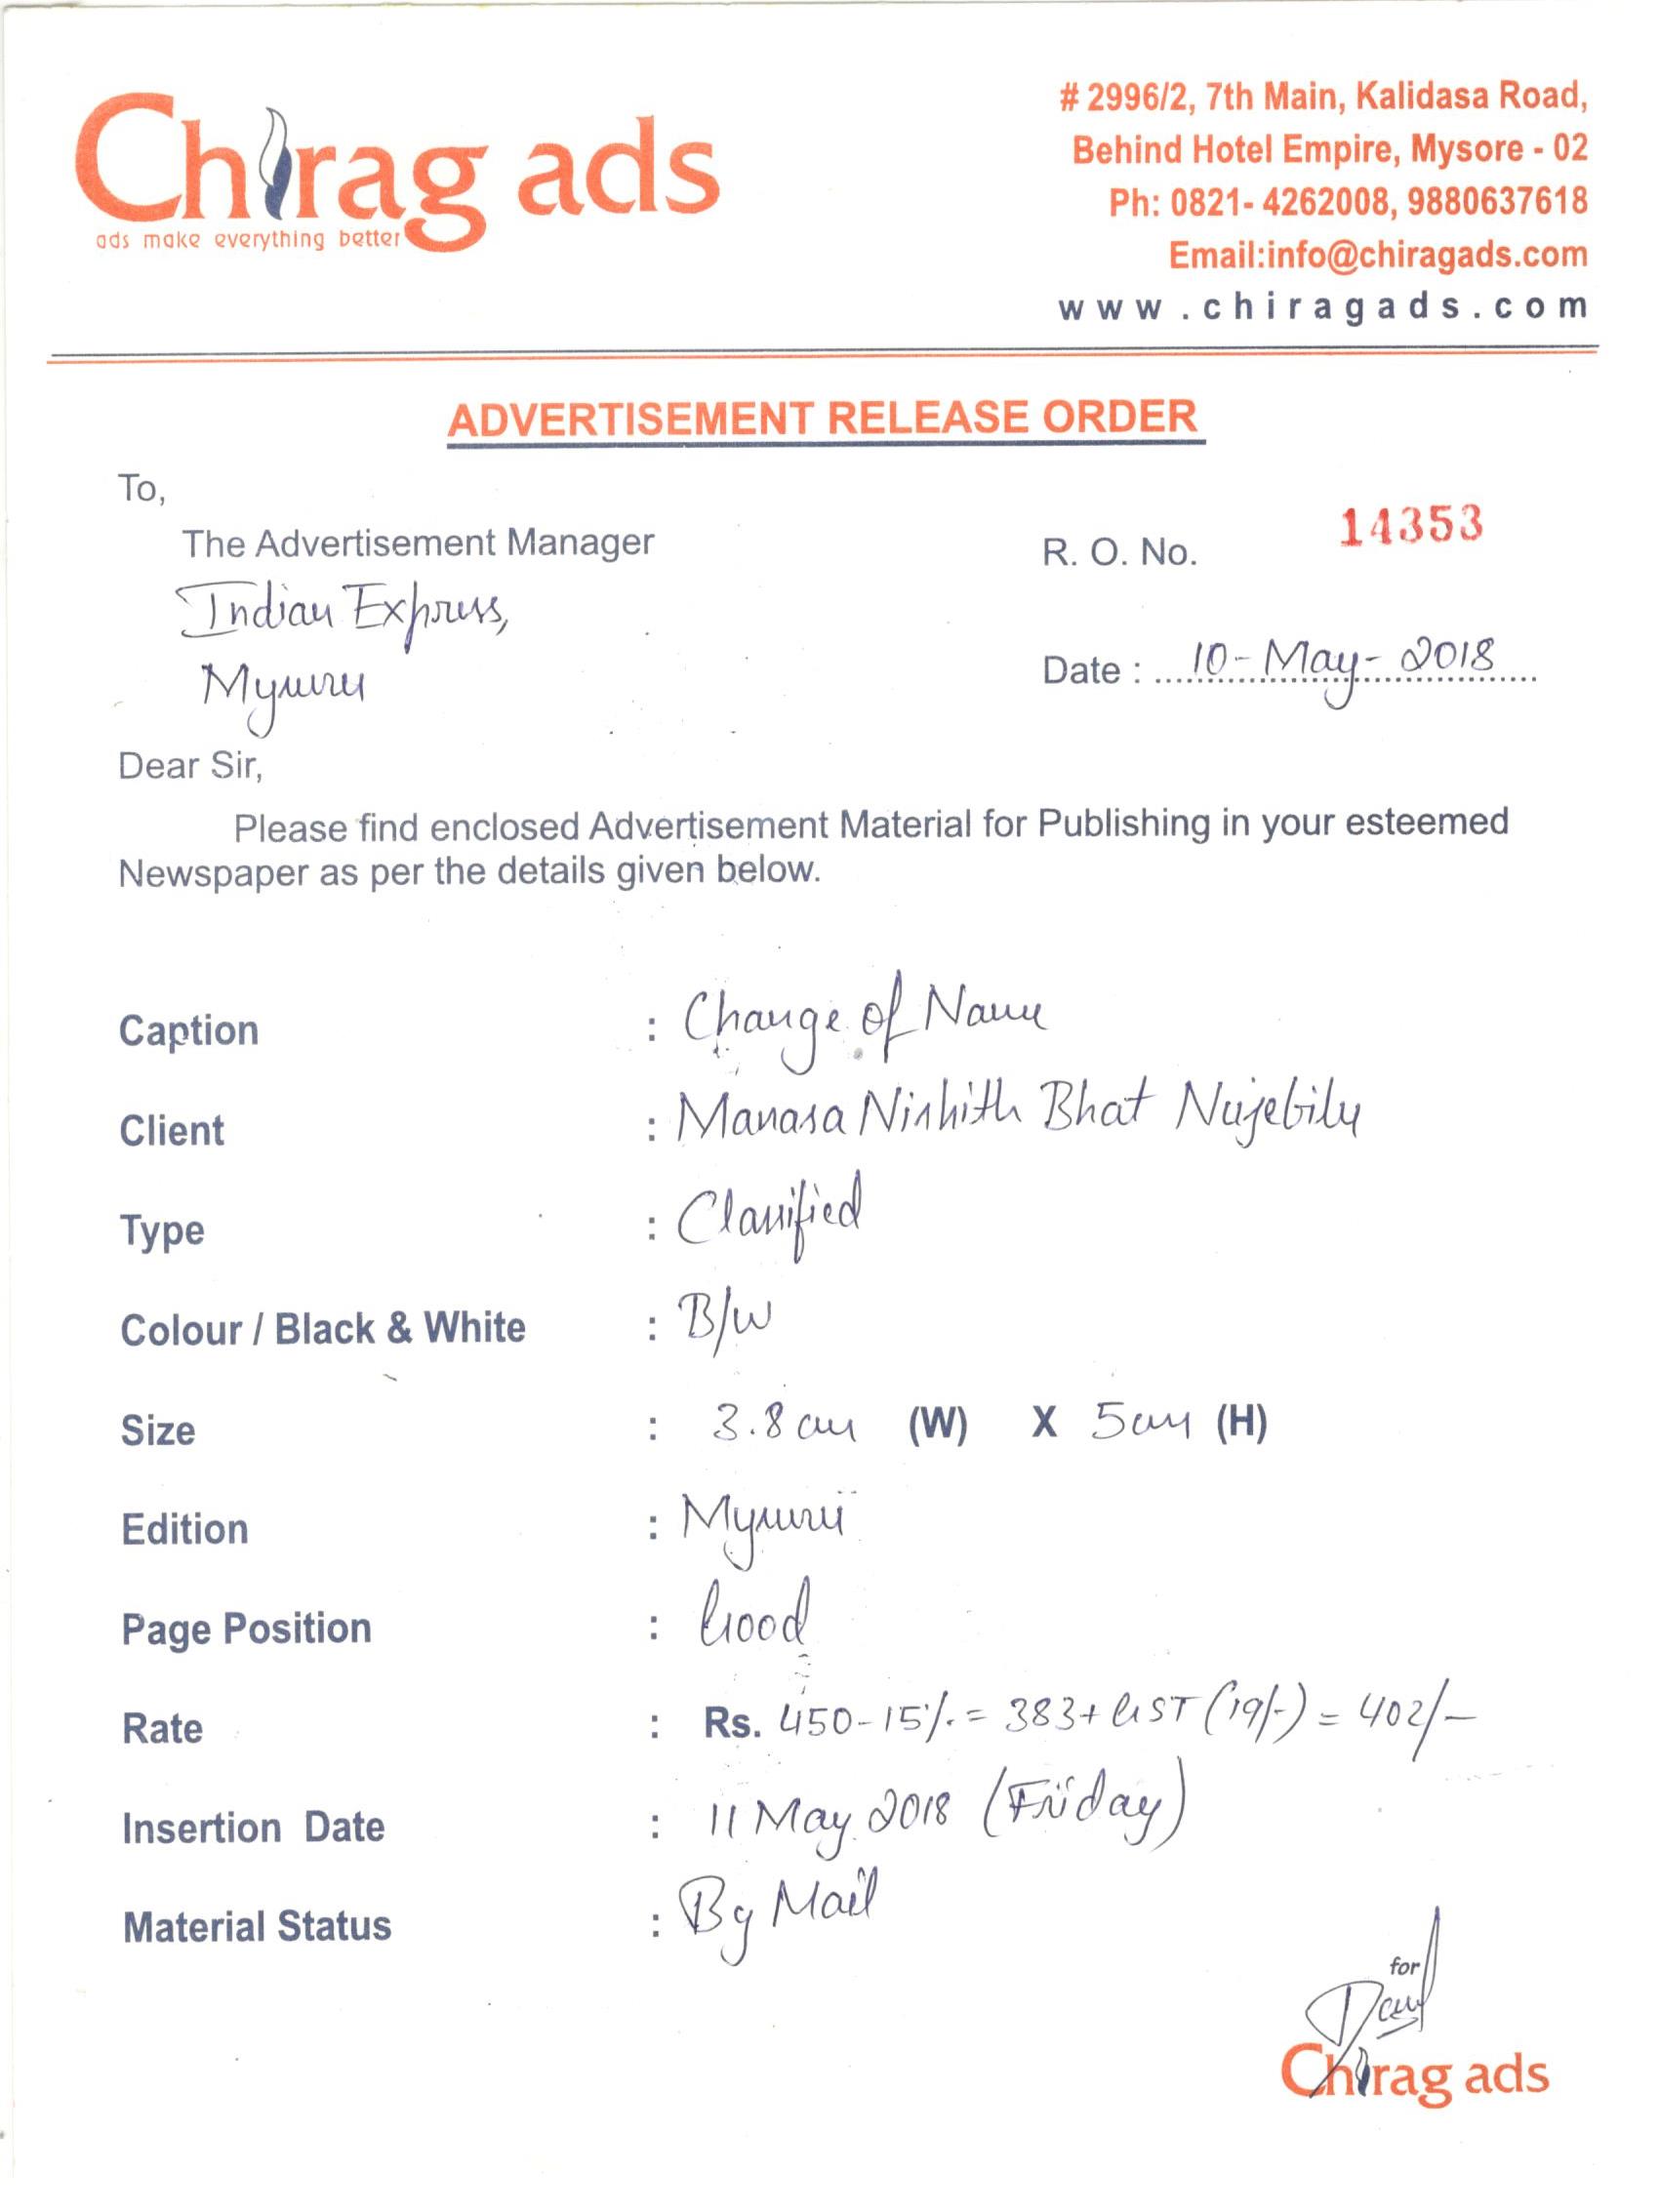 Chirag ads
ads make everything better
# 2996/2, 7th Main, Kalidasa Road,
Behind Hotel Empire, Mysore - 02
Ph: 0821- 4262008, 9880637618
Email:info@chiragads.com
www.chiragads.com
ADVERTISEMENT RELEASE ORDER
To,
The Advertisement Manager
Indian Express,
Mysuru
R. O. No. 14353
Date : 10-May-2018
Dear Sir,
Please find enclosed Advertisement Material for Publishing in your esteemed
Newspaper as per the details given below.
Caption : Change of Name
Client : Manasa Nishith Bhat Nujebily
Type : Classified
Colour / Black & White : B/W
Size : 3.8 cm (W) X 5cm (H)
Edition : Mysuru
Page Position : Good
Rate : Rs. 450-15%.= 383+ GST (19/-) = 402/-
Insertion Date : 11 May 2018 (Friday)
Material Status : By Mail
for
Chirag ads